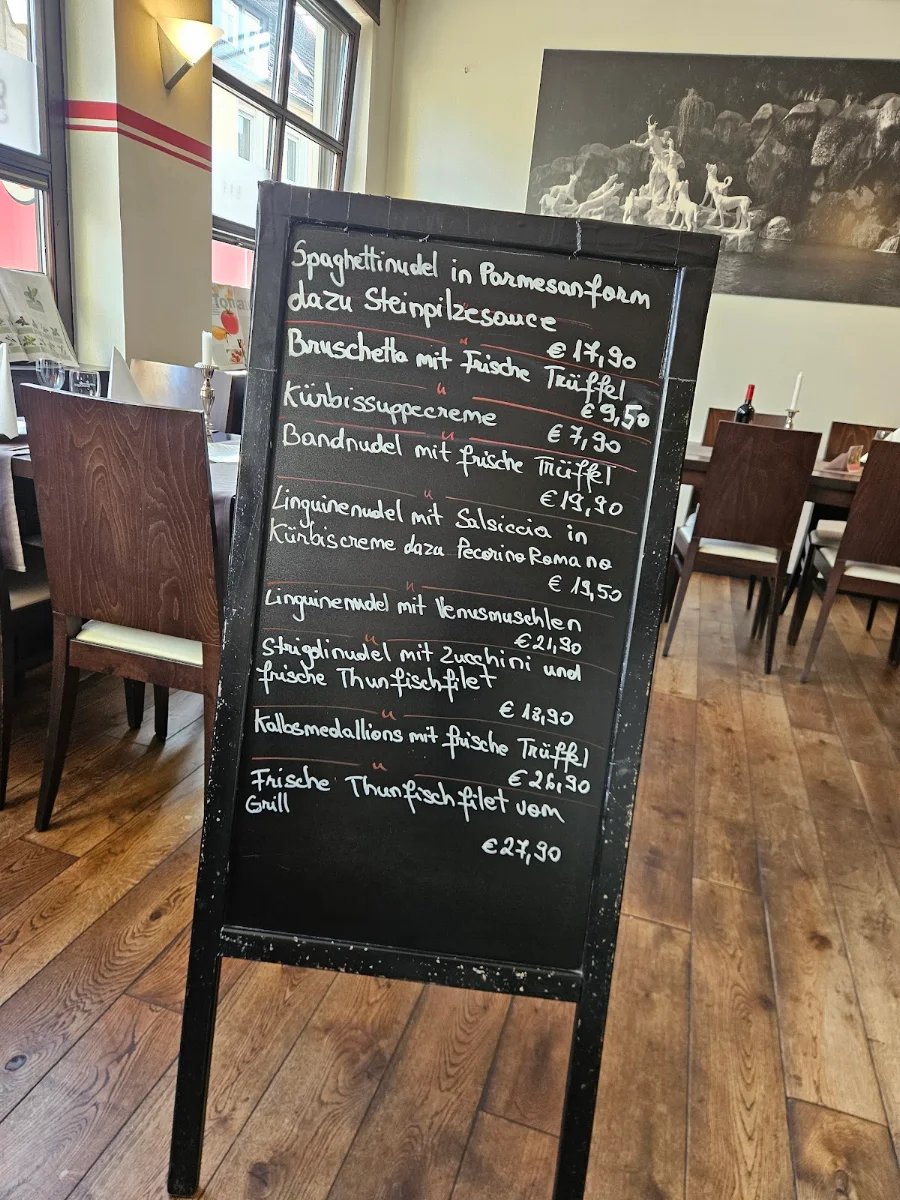 Spaghettinudel in Parmesanform
dazu Steinpilzesauce
€ 17,90
Bruschetta mit Frische Trüffel
€ 9,50
Kürbissuppecreme
€ 7,90
Bandnudel mit frische Trüffel
€ 19,90
Linguinenudel mit Salsiccia in
Kürbiscreme dazu Pecorino Romano
€ 19,50
Linguinenudel mit Venusmuschlen
€ 21,90
Strigolinudel mit Zucchini und
frische Thunfischfilet
€ 18,90
Kalbsmedallions mit frische Trüffel
€ 26,90
Frische Thunfischfilet vom
Grill
€ 27,90